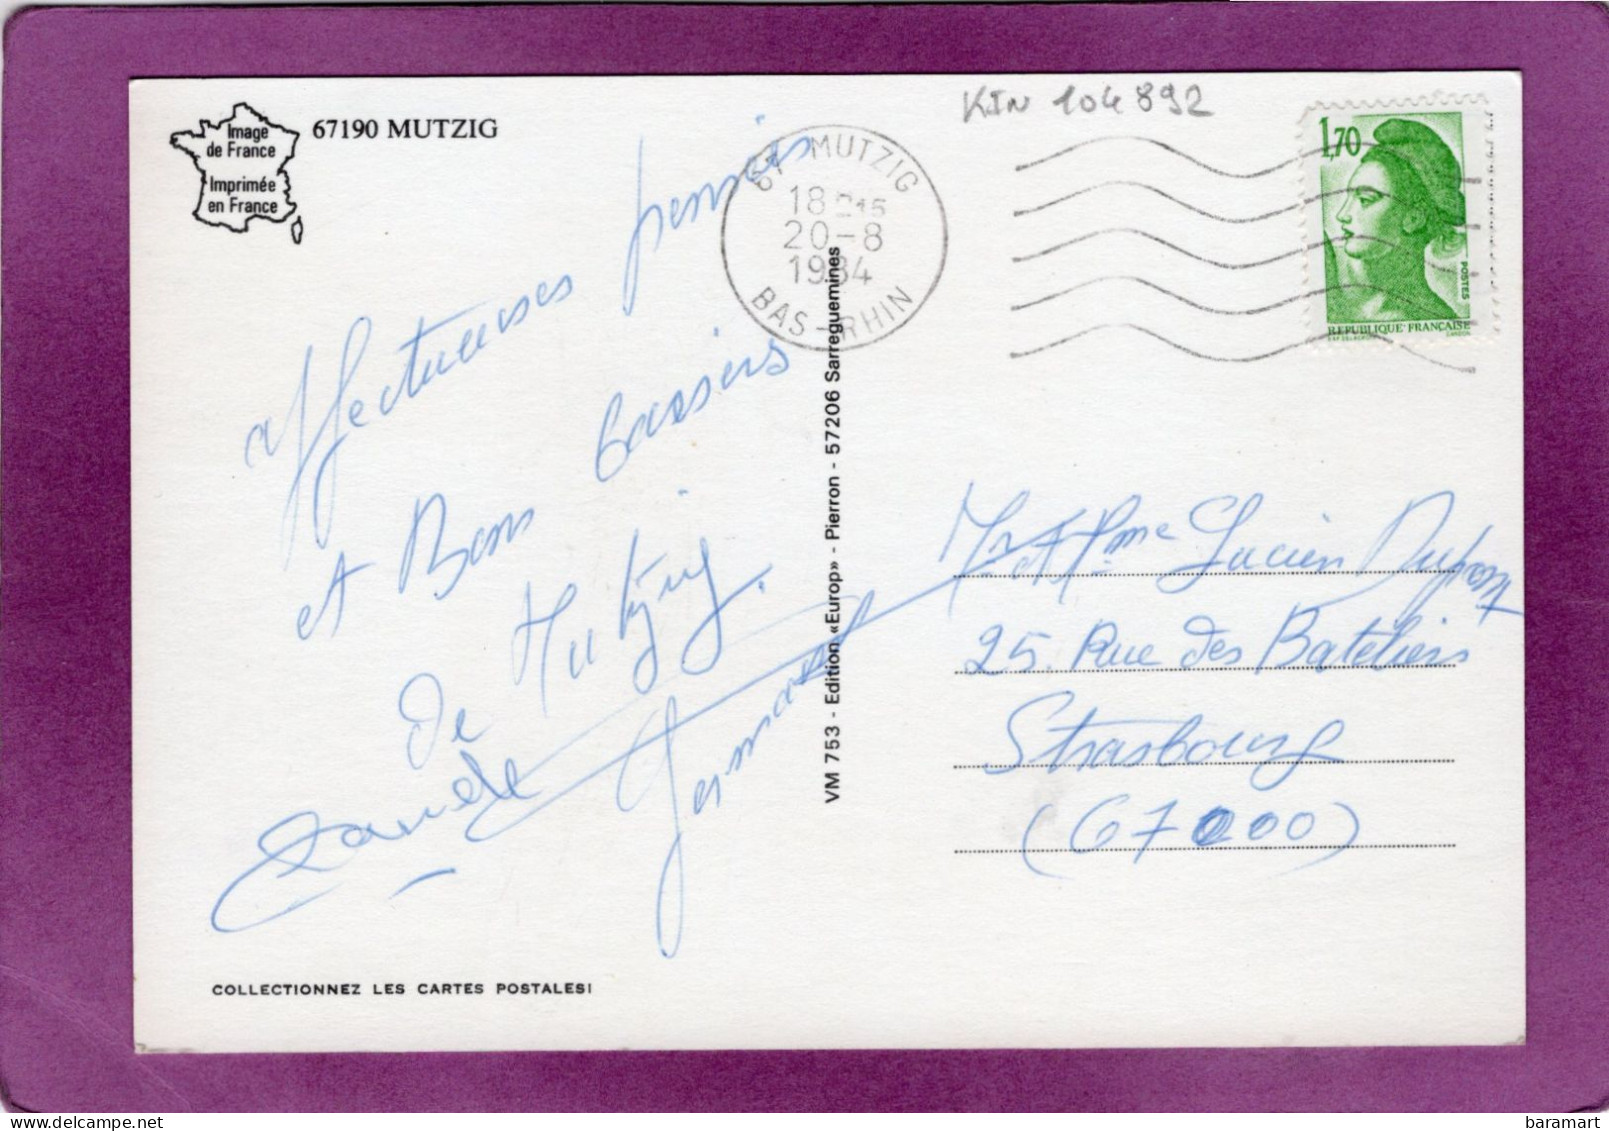 Image
de France
Imprimée
en France
67190 MUTZIG
KIN 104 892
67 MUTZIG
18
20-8
1984
BAS-RHIN
1,70
POSTES
REPUBLIQUE FRANÇAISE
affectueuses pensées
et Bons baisers
de Mutzig.
Claude Germaine
VM 753 - Edition «Europ» - Pierron - 57206 Sarreguemines
Mr et Mme Lucien Dupont
25. Rue des Bateliers
Strasbourg
(67000)
COLLECTIONNEZ LES CARTES POSTALES!
baramart